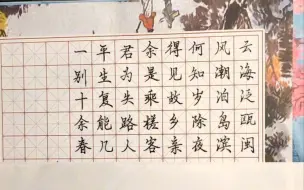 云海泛瓯闽
风潮泊岛滨
何知岁除夜
得见故乡亲
余是乘槎客
君为失路人
年生复能几
一别十余春